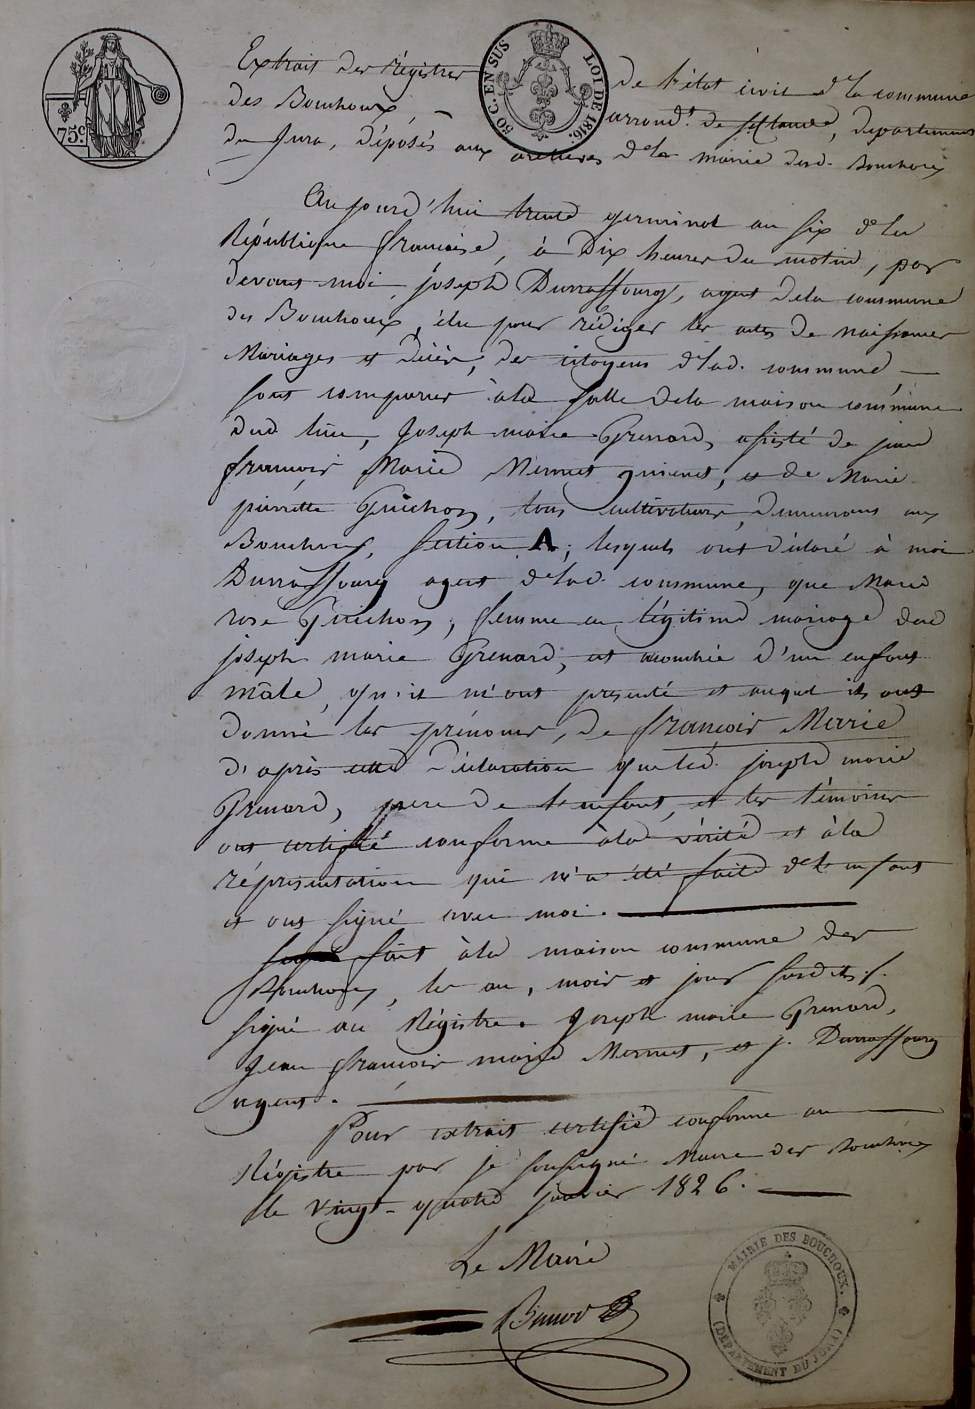 75 c.
50 C. EN SUS LOI DE 1816.
Extrait des Régistres de l'état civil de la commune
des Bouchoux, arrond.t de St Claude, département
du Jura, déposés aux archives de la mairie desd. Bouchoux
Aujourd'hui trente germinal an six de la
République francaise, à Dix heures du matin, par
devant moi, Joseph Durraffourg, agent de la commune
des Bouchoux, élu pour rédiger les actes de naissances
Mariages et décès, des citoyens de lad. commune
sont comparus à la salle de la maison commune
dud lieu, Joseph marie Grenard, assisté de jean
francois Marie Mermet, et de Marie
pierrette Guichon, tous cultivateurs, demeurans aux
Bouchoux, section A; lesquels ont déclaré à moi
Durraffourg agent de lad. commune, que Marie
rose Guichon, femme en légitime mariage dud
joseph marie Grenard, est accouchée d'un enfant
mâle, qu'il m'ont presenté et auquel ils ont
donné les prénoms, de francois Marie
d'après cette déclaration que led. joseph marie
Grenard, pere de l'enfant, et les témoins
ont certifié conforme à la vérité et à la
réprésentation qui m'a été faite de l'enfant
et ont signé avec moi.
fait à la maison commune des
Bouchoux, les an, mois et jour susdits.
signé au Régistre. Joseph marie Grenard,
Jean francois marie Mermet, et j. Durraffourg
agent.
Pour extrait certifié conforme au
Régistre par je soussigné Maire des Bouchoux
le vingt-quatre janvier 1826.
Le Maire
MAIRIE DES BOUCHOUX.
(DÉPARTEMENT DU JURA)